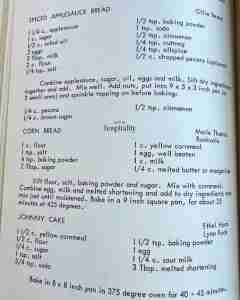 SPICED APPLESAUCE BREAD
Ollie
1 1/4 c. applesauce
1 c. sugar
1/2 c. salad oil
2 eggs
3 Tbsp. milk
2 c. flour
1/4 tsp. salt
1/2 tsp. baking powder
1 tsp. soda
1/2 tsp. cinnamon
1/4 tsp. nutmeg
1/4 tsp. allspice
1/2 c. chopped pecans (optional)
Combine applesauce, sugar, oil, eggs and milk. Sift dry ingredients
together and add. Mix well. Add nuts, put into 9 x 5 x 3 inch pan
well and sprinkle topping on before baking:
1/4 c. pecans
1/4 c. brown sugar
1/2 tsp. cinnamon
CORN BREAD
Temptality
Marie
1 c. flour
1 tsp. salt
4 tsp. baking powder
2 Tbsp. sugar
1 c. yellow cornmeal
1 egg, well beaten
1 c. milk
1/4 c. melted butter or margarine
Sift flour, salt, baking powder and sugar. Mix with cornmeal.
Combine egg, milk and melted shortening and add to dry ingredients
mix just until moistened. Bake in a 9 inch square pan, for about 25
minutes at 425 degrees.
JOHNNY CAKE
Ethel
Lynn
1 1/2 c. yellow cornmeal
1/2 c. flour
1/4 c. sugar
1 tsp. salt
3/4 tsp. soda
1 1/2 tsp. baking powder
1 egg
1 1/2 c. sour milk
3 Tbsp. melted shortening
Bake in 8 x 8 inch pan in 375 degree oven for 40 - 45 minutes.